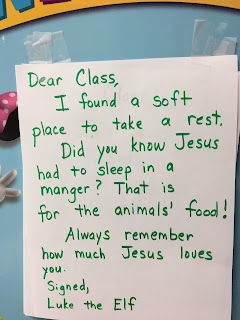 Dear Class,
I found a soft
place to take a rest.
Did you know Jesus
had to sleep in a
manger? That is
for the animals' food!
Always remember
how much Jesus loves
you.
Signed,
Luke the Elf